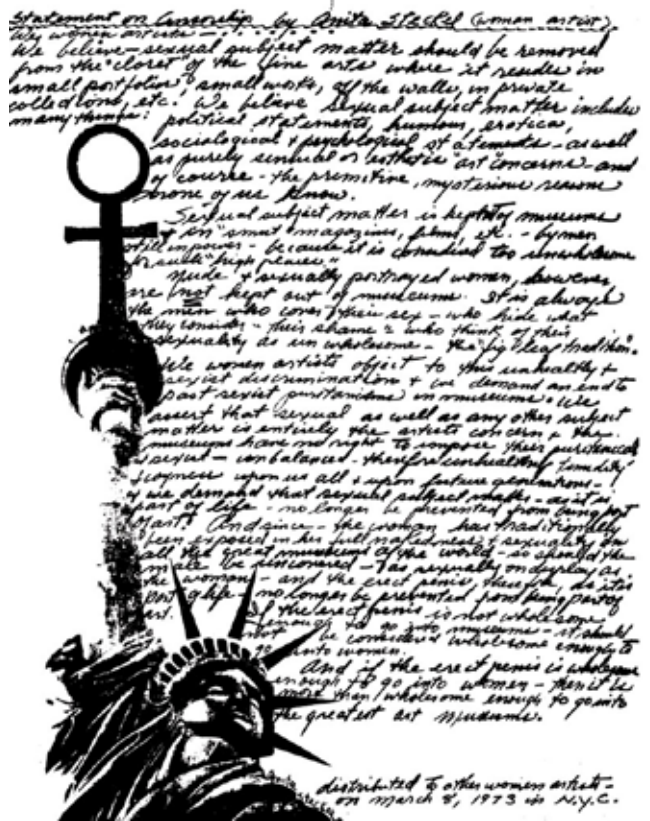 Statement on Censorship by Anita Steckel (woman artist).
We women artists —
We believe — sexual subject matter should be removed
from the "closet" of the fine arts where it resides in
small portfolios, small works, off the walls, in private
collections, etc. We believe sexual subject matter includes
many things:
political statements, humour, erotica,
sociological & psychological statements — as well
as purely sensual or esthetic "art" concerns — and
of course — the primitive, mysterious reasons
none of us know.
Sexual subject matter is kept out of museums
& in "smut" magazines, films, etc. — by men
still in power — because it is considered too unwholesome
for such "high places".
Nude & sexually portrayed women, however,
are not kept out of museums. It is always
the men who cover their sex — who hide what
they consider — their shame & who think of their
sexuality as unwholesome — the "fig leaf tradition".
We women artists object to this unhealthy &
sexist discrimination & we demand an end to
past sexist puritanism in museums. We
assert that sexual as well as any other subject
matter is entirely the artists concern & the
museums have no right to impose their puritanical
& sexist — unbalanced — therefore unhealthy timidity
upon us all & upon future generations —
& we demand that sexual subject matter — as it is
part of life — no longer be prevented from being part
of art! And since — the woman has traditionally
been exposed in her full nakedness & sexuality in
all the great museums of the world — so should the
male be uncovered — as sexually on display as
the woman — and the erect penis therefore, as it is
part of life — no longer be prevented from being part of
art.
If the erect penis is not wholesome
enough to go into museums — it should
not be considered wholesome enough to
go into women.
And if the erect penis is wholesome
enough to go into women — then it is
more than wholesome enough to go into
the greatest art museums.
distributed to other women artists —
on march 8, 1973 in N.Y.C.